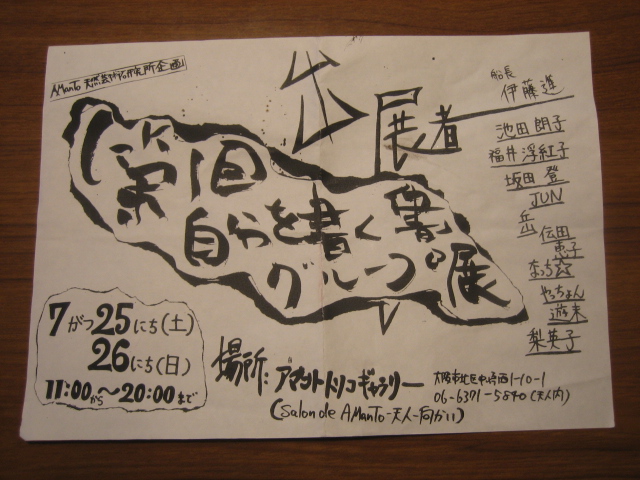 AManTo 天然芸術研究所企画
第1回
自分を書く書
グループ展
出展者
船長
伊藤進
池田朗子
福井浮紅子
坂田登
JUN
岳
伝田
恵子
なっち
やっちょん
遊未
梨英子
7がつ25にち(土)
26にち(日)
11:00から～20:00まで
場所:アマントトリコギャラリー
(Salon de AManTo-天人-向かい)
大阪市北区中崎西1-10-1
06-6371-5840(天人内)